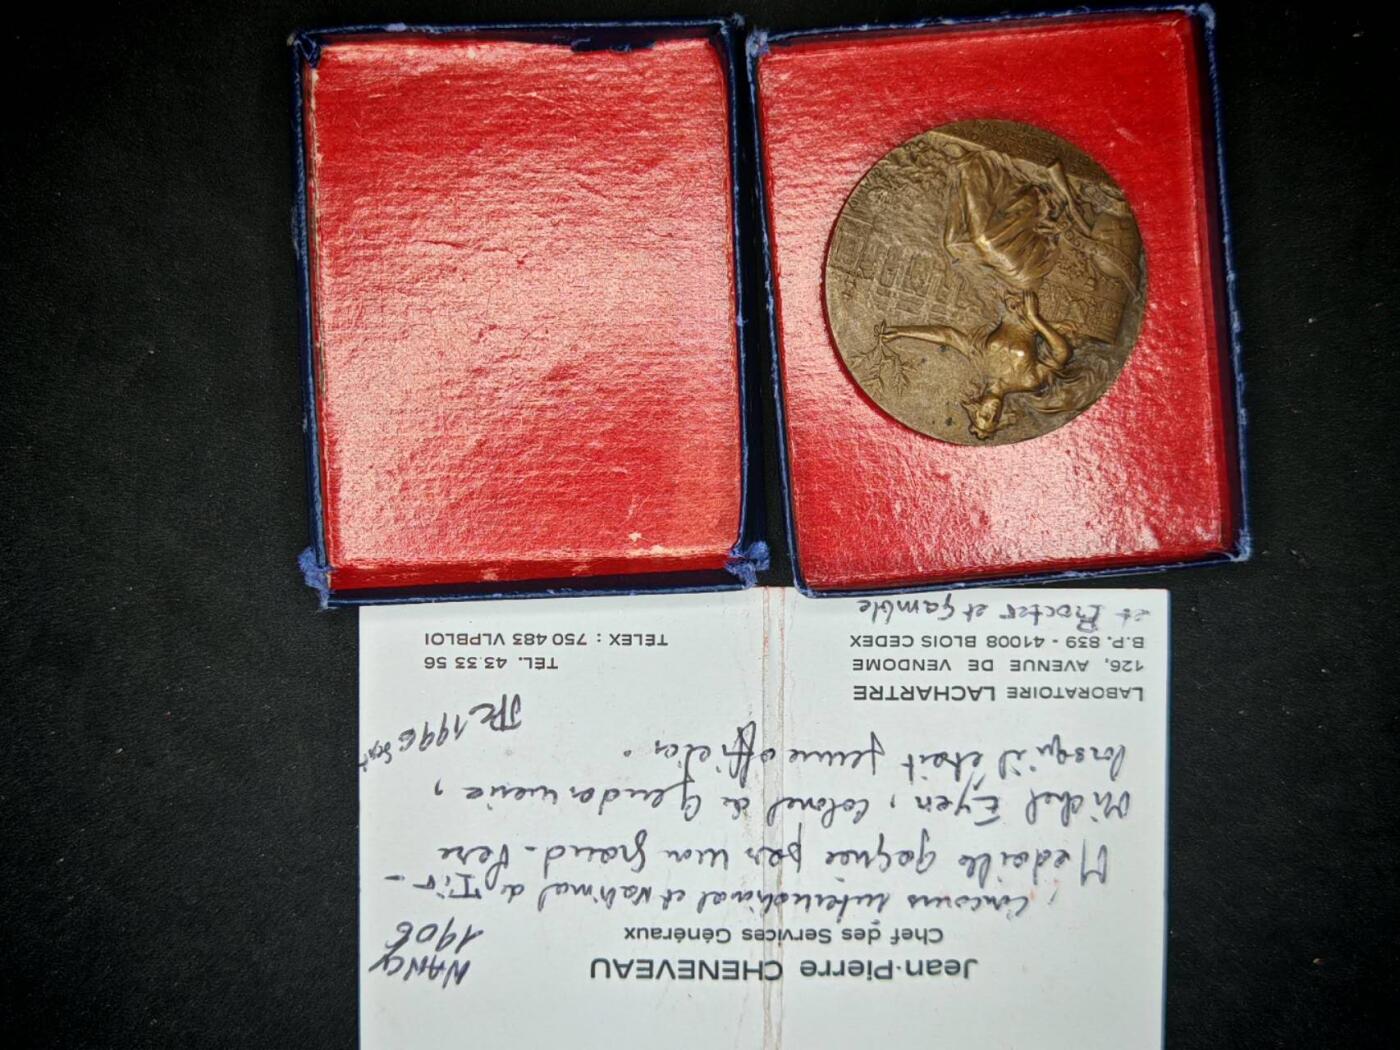 Jean-Pierre CHENEVEAU
NANCY
1906
Chef des Services Généraux
Concours international et National de Tir -
Médaille gagnée par mon grand-Père
Michel Eyen, Colonel de Gendarmerie,
lorsqu'il était jeune officier.
JPC 1996 Sept
LABORATOIRE LACHARTRE
126, AVENUE DE VENDOME
B.P. 839 - 41008 BLOIS CEDEX
et Procter et Gamble
TÉL. 43.33 56
TELEX : 750 483 VLPBLOI